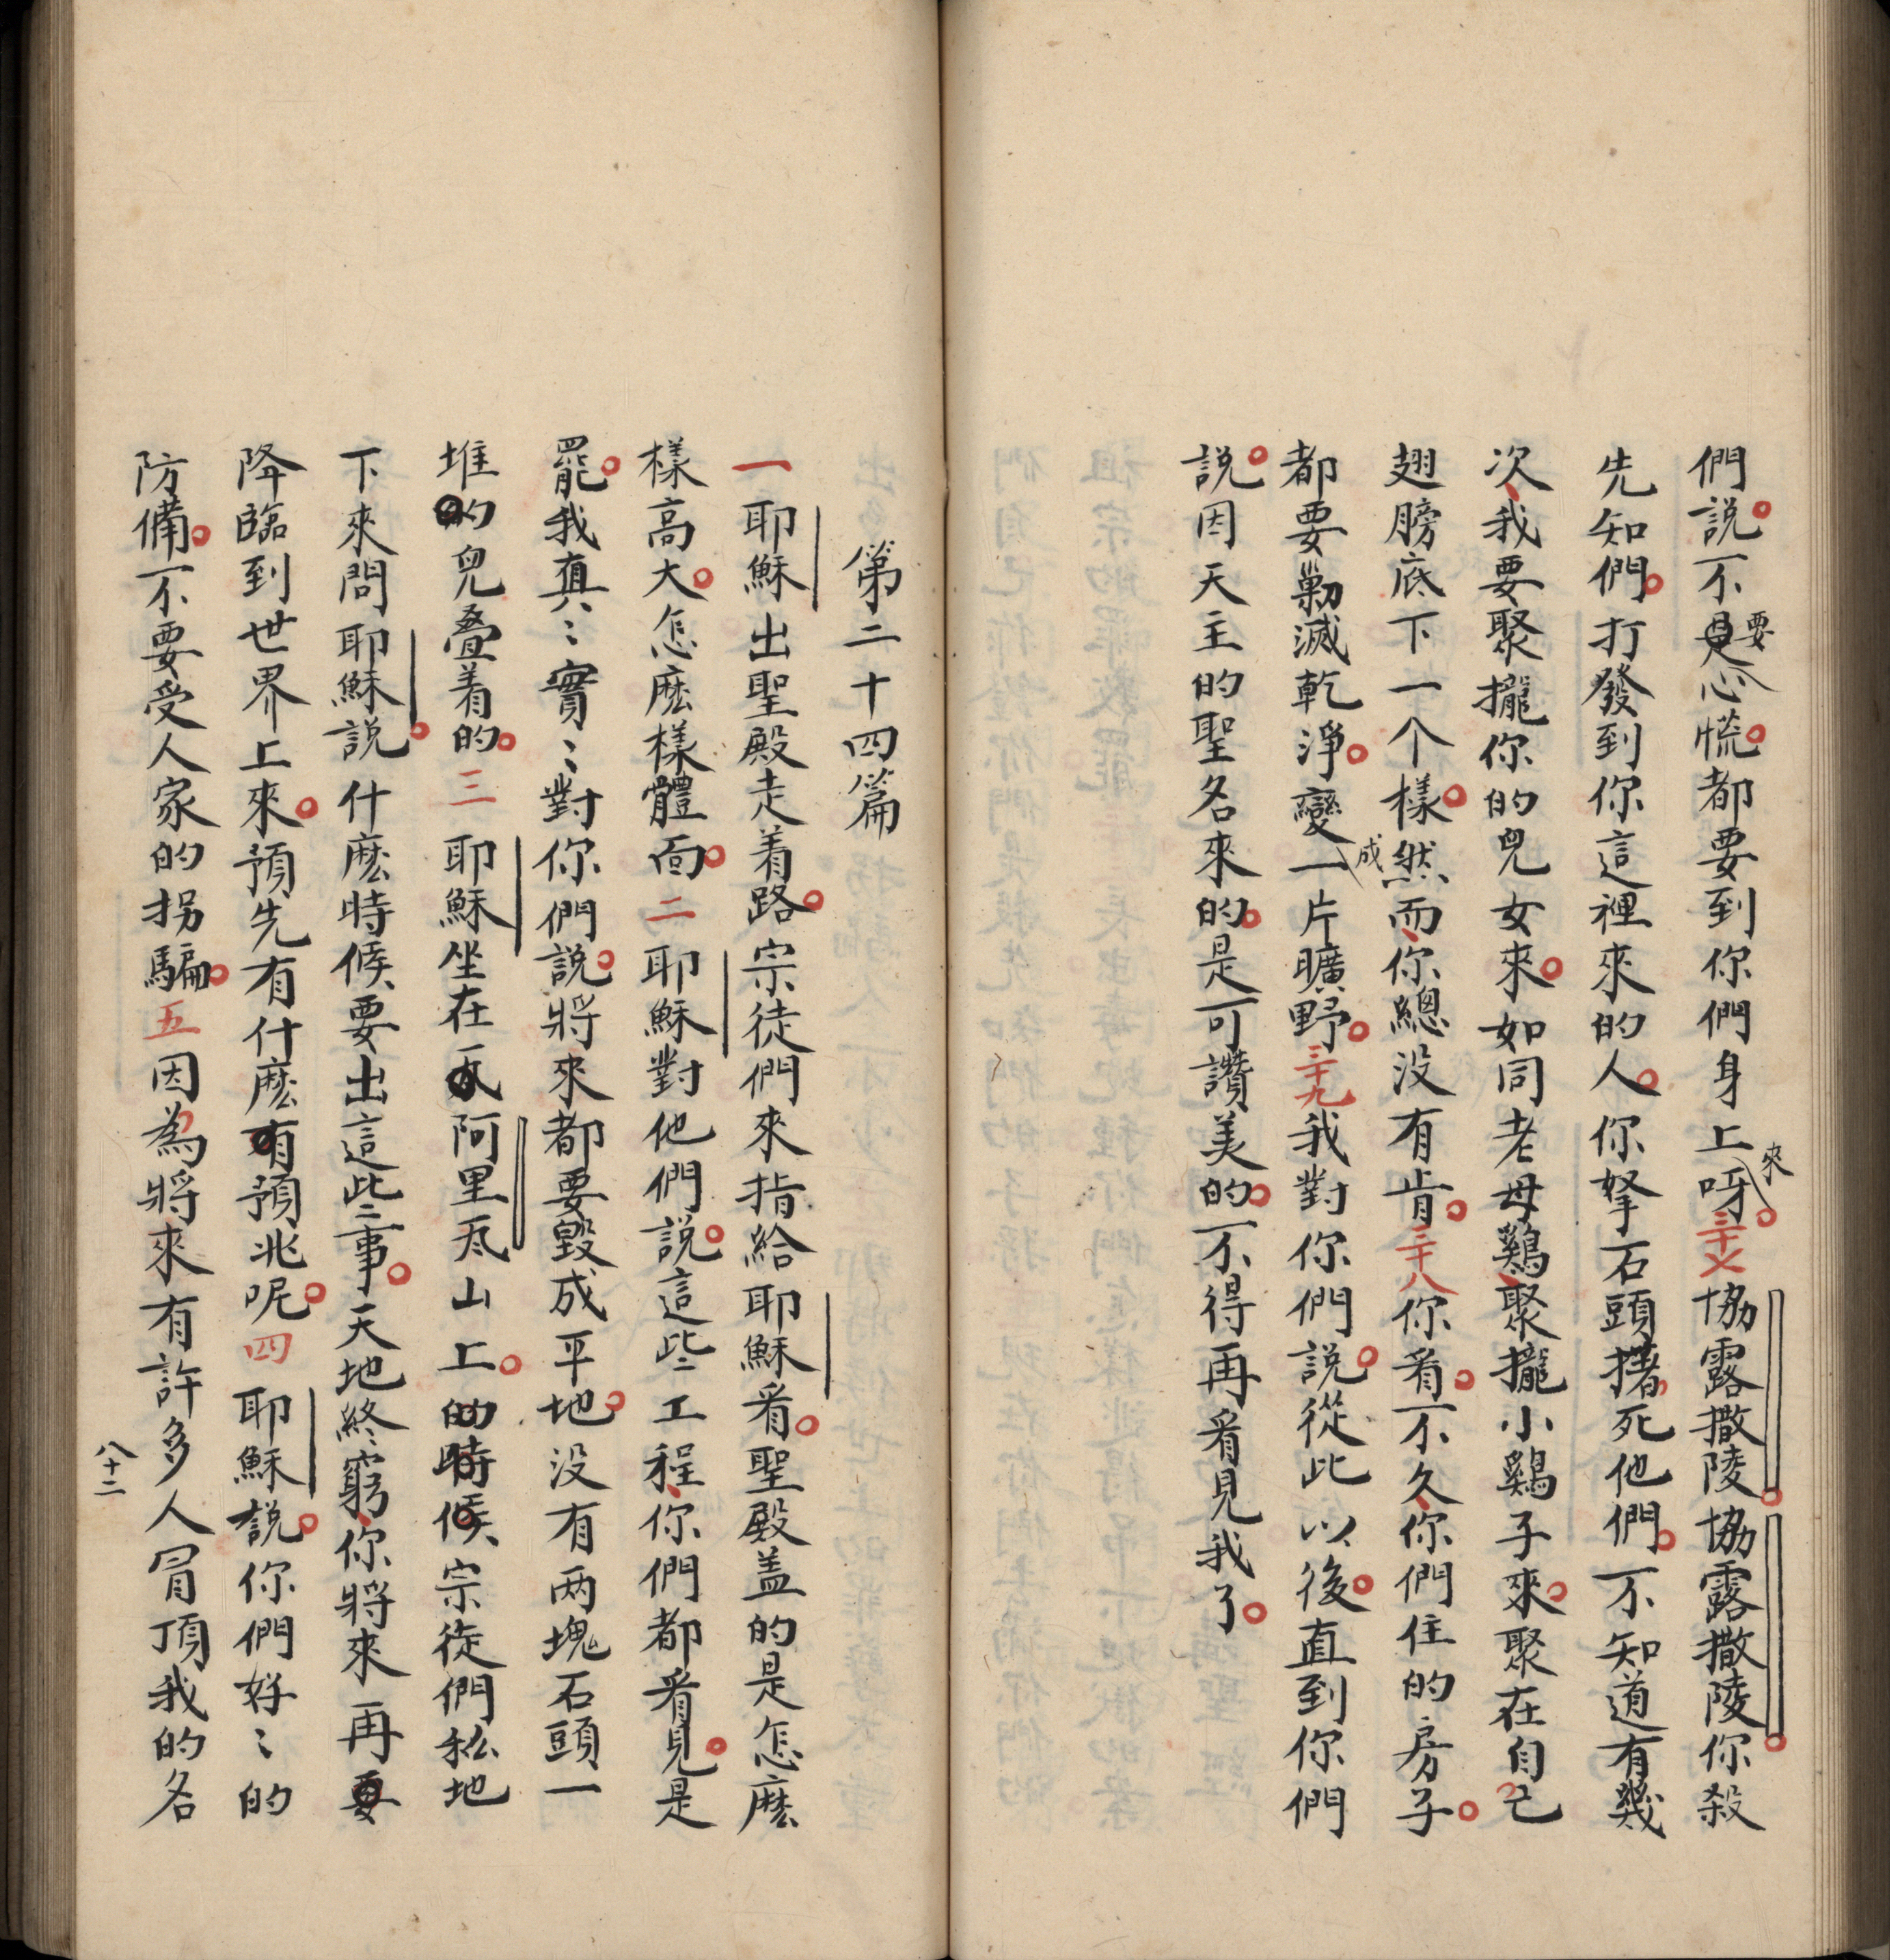 們説不要心慌都要到你們身上來呀三十七協露撒陵協露撒陵你殺
先知們打發到你這裡來的人你拏石頭撦死他們不知道有幾
次我要聚攏你的兒女來如同老母鷄聚攏小鷄子來聚在自己
翅膀底下一个樣然而你總没有肯三十八你看不久你們住的房子
都要剿滅乾淨變成一片曠野三十九我對你們説從此以後直到你們
説因天主的聖名來的是可讚美的不得再看見我了
第二十四篇
一耶穌出聖殿走着路宗徒們來指給耶穌看聖殿盖的是怎麽
樣高大怎麽樣體面二耶穌對他們説這些工程你們都看見是
罷我真〻實〻對你們説將來都要毀成平地没有两塊石頭一
堆的兒叠着的三耶穌坐在阿里瓦山上的時候宗徒們私地
下來問耶穌説什麽時候要出這些事天地終窮你將來再要
降臨到世界上來預先有什麽預兆呢四耶穌説你們好〻的
防備不要受人家的拐騙五因為將來有許多人冐頂我的名
八十二